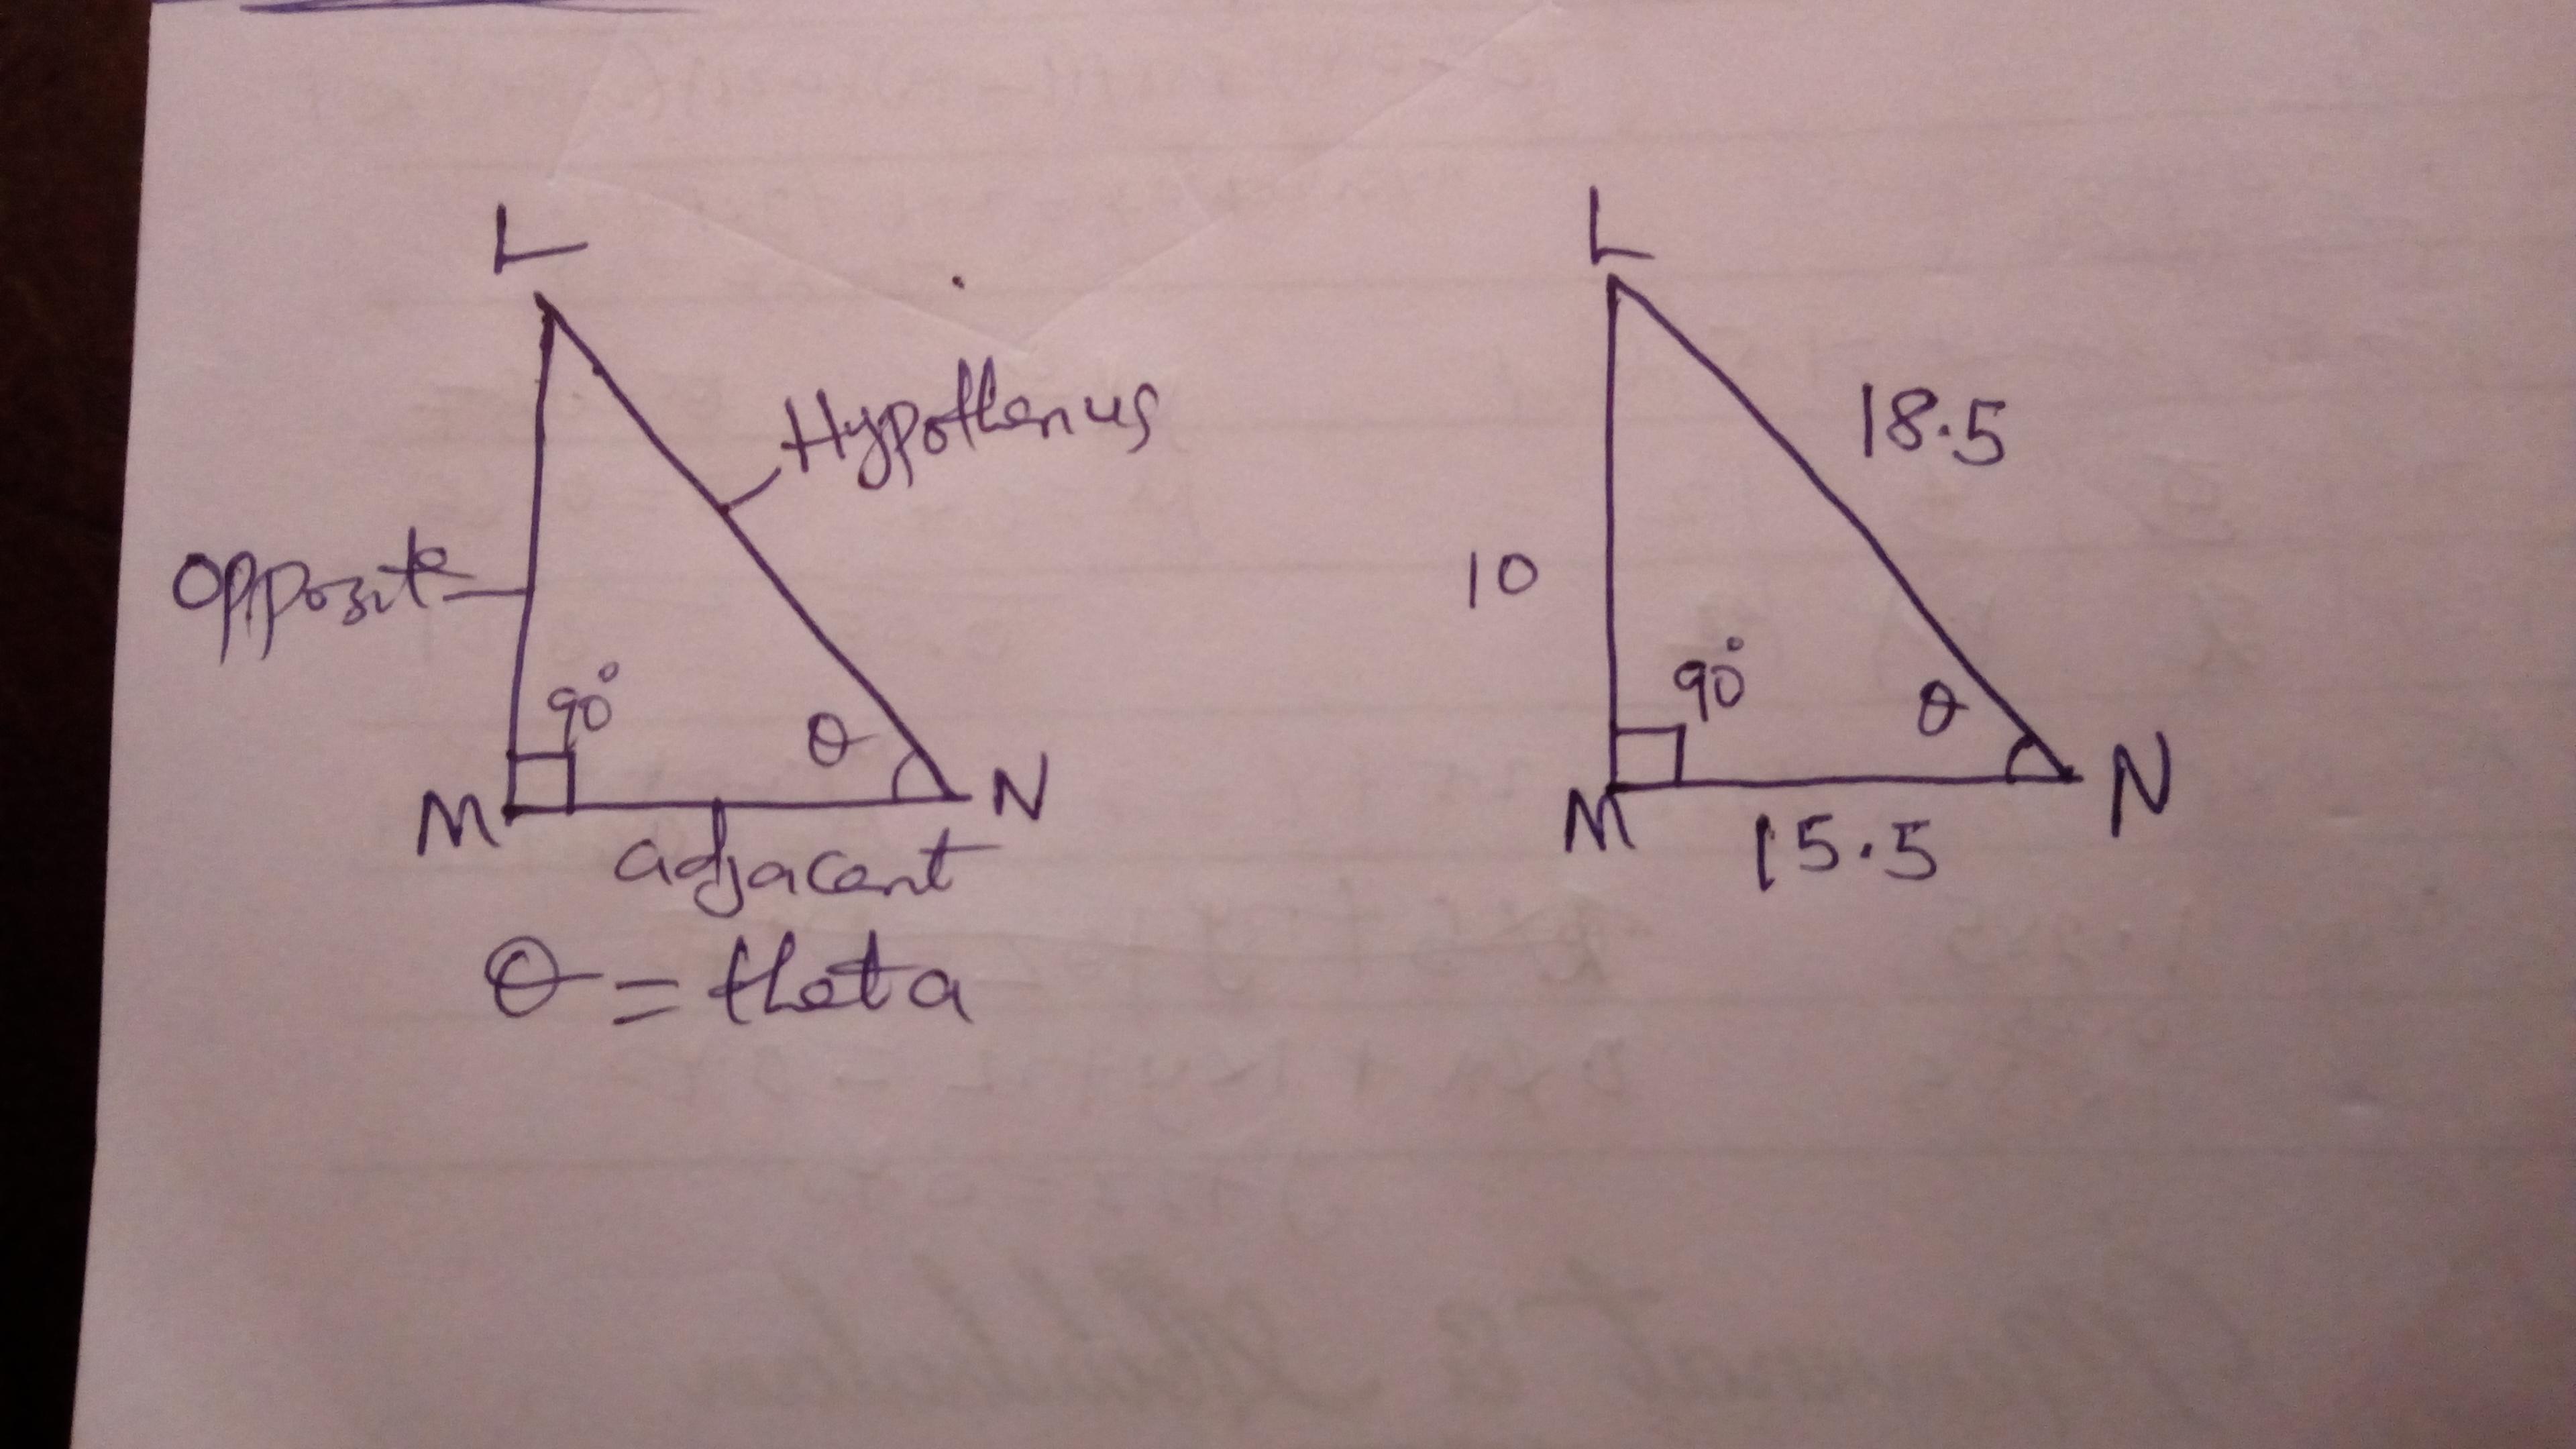 L
Hypothenus
opposite
90°
θ
M
N
adjacent
θ = theta
L
18.5
10
90°
θ
M
N
15.5